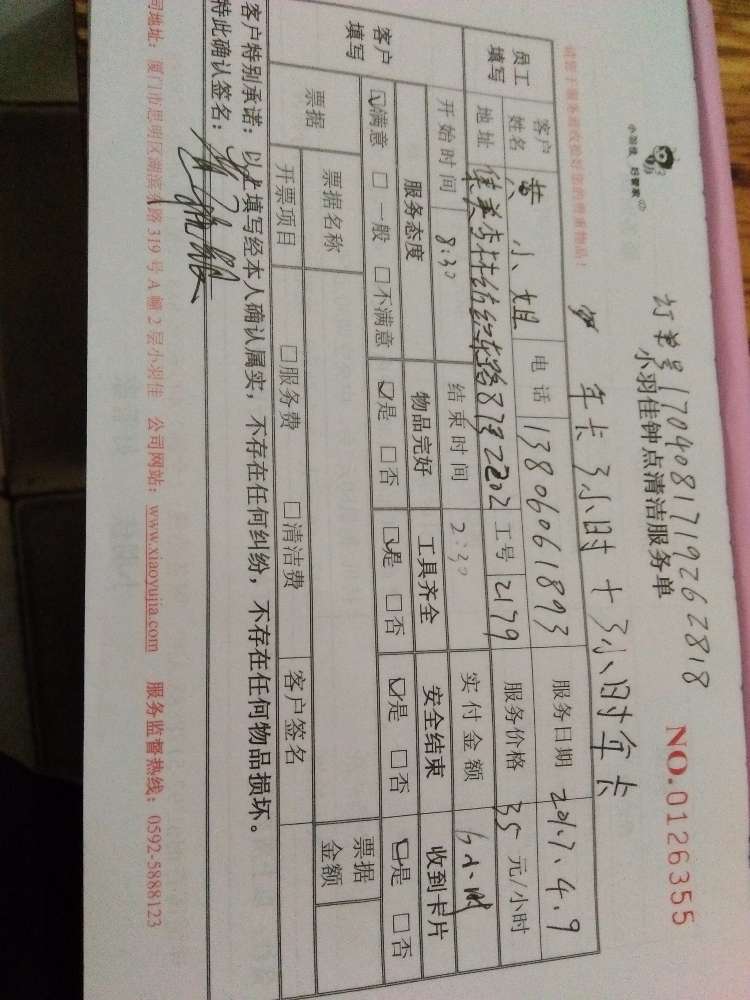 订单号1704081719262818
小羽佳 好管家
小羽佳钟点清洁服务单
NO.0126355
年卡3小时+3小时年卡
员工填写
客户姓名 黄小姐 电话 13806061893 服务日期 2017.4.9
地址 2202 工号 2179 服务价格 35 元/小时
开始时间 8:30 结束时间 2:30 实付金额 6小时
客户填写
服务态度 物品完好 工具齐全 安全结束 收到卡片
☑满意 □一般 □不满意 ☑是 □否 ☑是 □否 ☑是 □否 ☑是 □否
票据 票据名称 票据金额
开票项目 □服务费 □清洁费 客户签名
客户特别承诺：以上填写经本人确认属实，不存在任何纠纷，不存在任何物品损坏。
特此确认签名：
司地址：厦门市思明区湖滨东路 319 号 A 幢 2 层小羽佳 公司网站：www.xiaoyujia.com 服务监督热线：0592-5888123